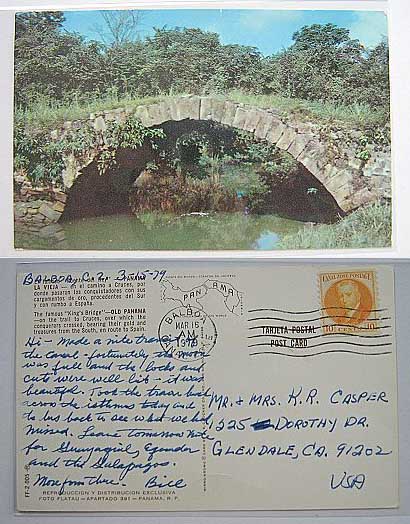 BALBOA, C.Z. 3-15-79
PANAMA
LA VIEJA — en el camino a Cruces, por
donde pasaron los conquistadores con sus
cargamentos de oro, procedentes del Sur
y con rumbo a España.
The famous "King's Bridge" — OLD PANAMA
— on the trail to Cruces, over which the
conquerors crossed, bearing their gold and
treasures from the South, en route to Spain.
Hi - Made a nite transit
the canal - fortunately the moon
was full and the locks and
cuts were well lit - it was
beautiful. Took the train back
across the isthmus today and
bus back to see what we had
missed. Leave tomorrow nite
for Guayaquil, Equador
and the Galapagos.
More from there - Bill
REPRODUCCION Y DISTRIBUCION EXCLUSIVA
FOTO FLATAU - APARTADO 391 - PANAMA, R. P.
PANAMA
BALBOA
MAR 16
AM
CANAL ZONE POSTAGE
10 CENTS 10
TARJETA POSTAL
POST CARD
MR. & MRS. K.R. CASPER
1325 DOROTHY DR.
GLENDALE, CA. 91202
USA